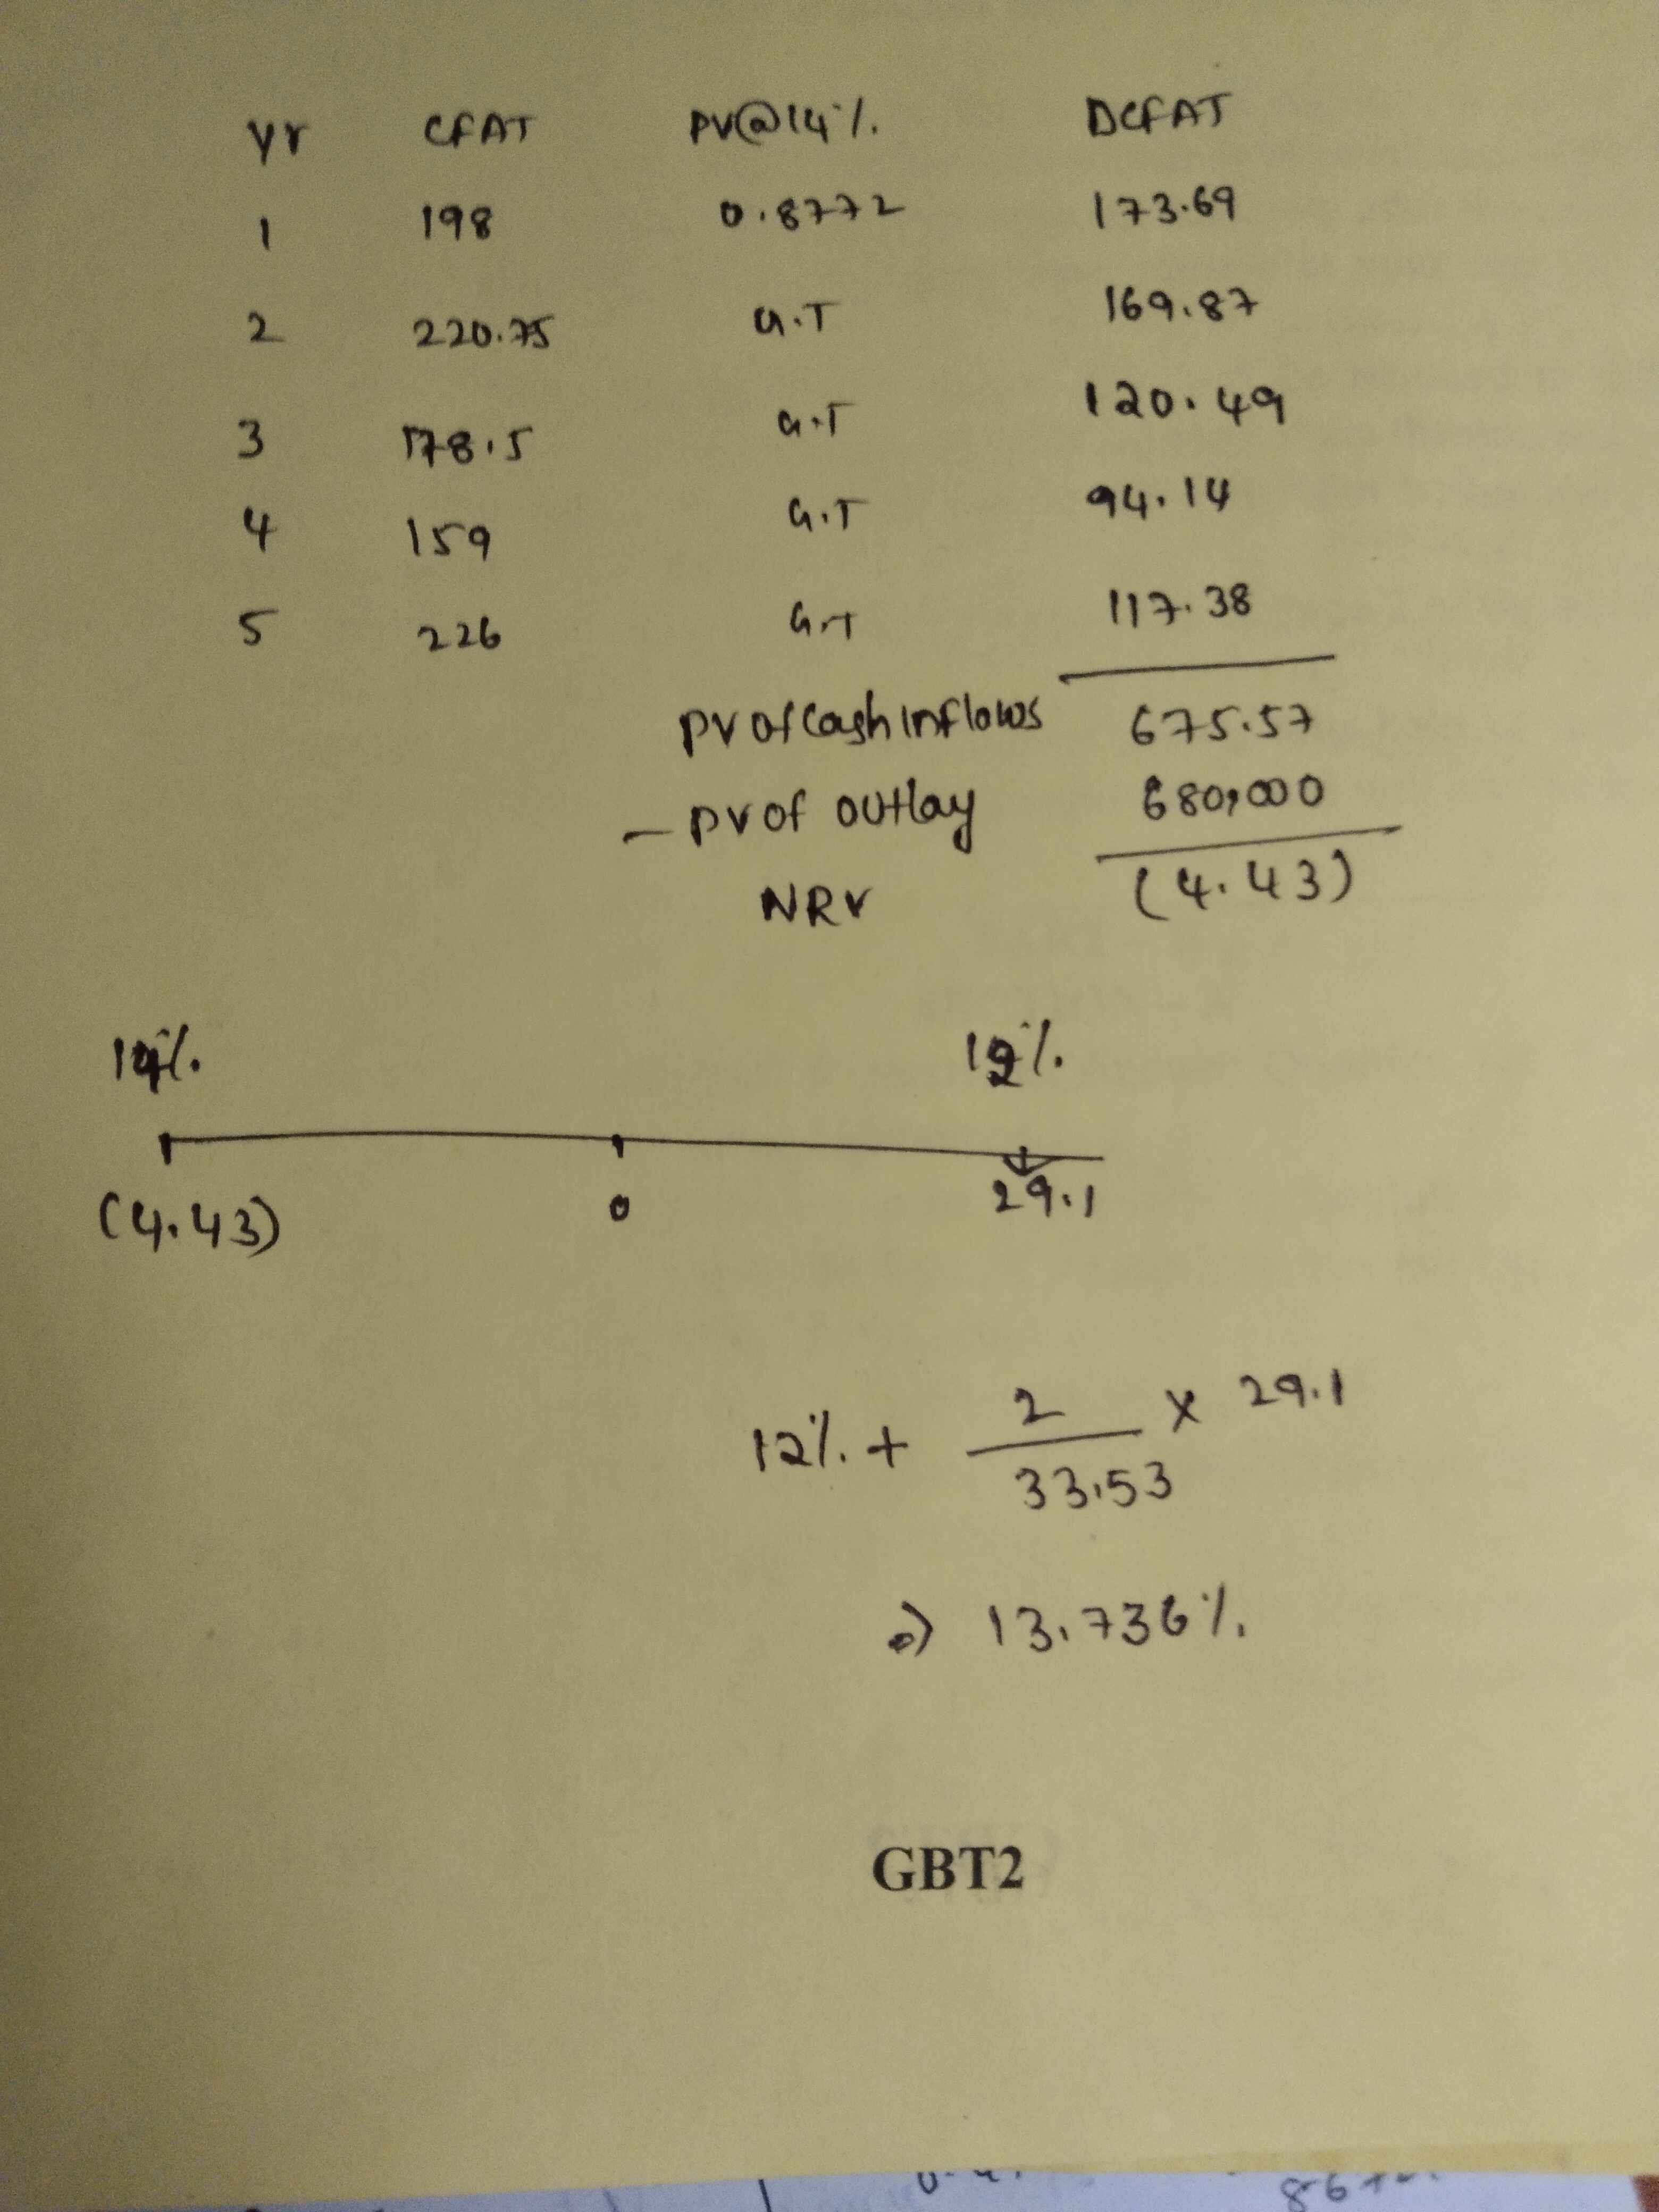 yr CFAT PV@14%. DCFAT
1 198 0.8772 173.69
2 220.75 G.T 169.87
3 178.5 G.T 120.49
4 159 G.T 94.14
5 226 G.T 117.38
PV of Cash inflows 675.57
- PV of outlay 680,000
NRV (4.43)
14%. 12%.
(4.43) 0 29.1
12%. + 2 / 33.53 x 29.1
13.736%.
GBT2